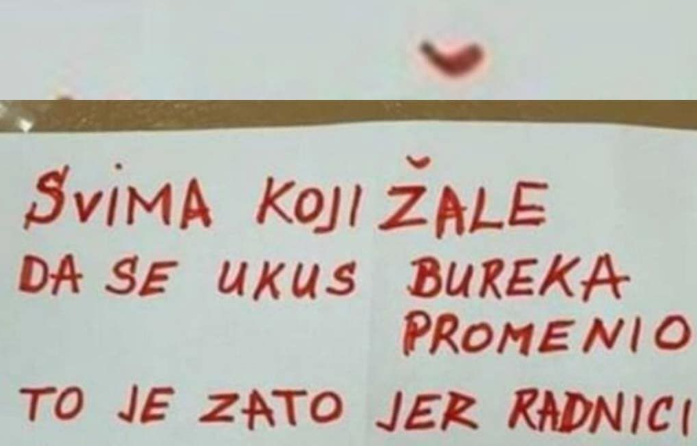 SVIMA KOJI ŽALE
DA SE UKUS BUREKA
PROMENIO
TO JE ZATO JER RADNICI